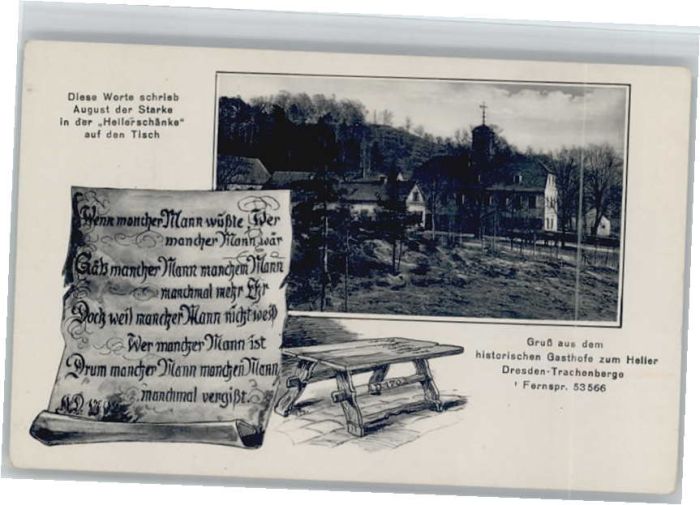 Diese Worte schrieb
August der Starke
in der „Hellerschänke"
auf den Tisch
Wenn mancher Mann wüßte, Wer
mancher Mann wär
Gäb mancher Mann manchem Mann
manchmal mehr Ehr
Doch weil mancher Mann nicht weiß
Wer mancher Mann ist
Drum mancher Mann manchen Mann
manchmal vergißt.
A.D.
Gruß aus dem
historischen Gasthofe zum Heller
Dresden-Trachenberge
Fernspr. 53566